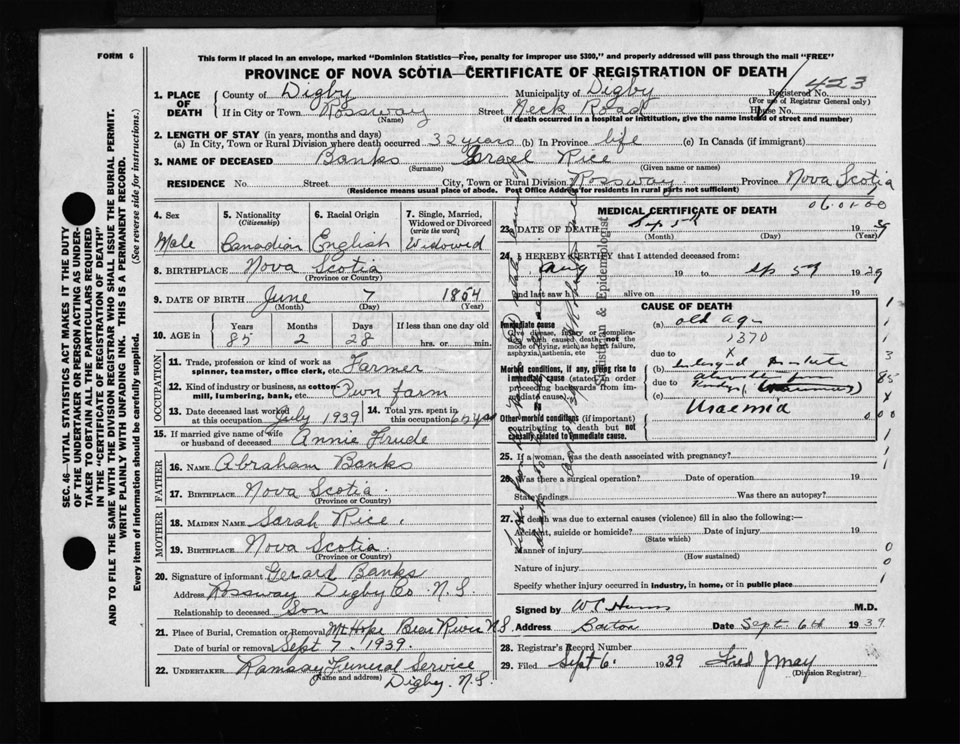 FORM 6
This form if placed in an envelope, marked "Dominion Statistics—Free, penalty for improper use $300," and properly addressed will pass through the mail "FREE"
PROVINCE OF NOVA SCOTIA—CERTIFICATE OF REGISTRATION OF DEATH
423
1. PLACE OF DEATH County of Digby Municipality of Digby Registered No.
(For use of Registrar General only)
If in City or Town Rossway (Name) Street Neck Road House No.
(If death occurred in a hospital or institution, give the name instead of street and number)
2. LENGTH OF STAY (in years, months and days)
(a) In City, Town or Rural Division where death occurred 32 years (b) In Province life (c) In Canada (if immigrant)
3. NAME OF DECEASED Banks Israel Rice
(Surname) (Given name or names)
RESIDENCE No. Street City, Town or Rural Division Rossway. Province Nova Scotia
(Residence means usual place of abode. Post Office Address for residents in rural parts not sufficient)
4. Sex 5. Nationality (Citizenship) 6. Racial Origin 7. Single, Married, Widowed or Divorced (write the word)
Male Canadian English Widowed
8. BIRTHPLACE Nova Scotia
(Province or Country)
9. DATE OF BIRTH June 7 1854
(Month) (Day) (Year)
10. AGE in Years Months Days If less than one day old
85 2 28 hrs. or min.
OCCUPATION
11. Trade, profession or kind of work as spinner, teamster, office clerk, etc. Farmer
12. Kind of industry or business, as cotton-mill, lumbering, bank, etc. Own farm
13. Date deceased last worked at this occupation July 1939 14. Total yrs. spent in this occupation
15. If married give name of wife or husband of deceased Annie Trude
FATHER
16. NAME Abraham Banks
17. BIRTHPLACE Nova Scotia
(Province or Country)
MOTHER
18. MAIDEN NAME Sarah Rice.
19. BIRTHPLACE Nova Scotia.
(Province or Country)
20. Signature of informant Gerard Banks
Address Rossway Digby Co N.S.
Relationship to deceased Son
21. Place of Burial, Cremation or Removal Mt Hope Bear River N.S.
Date of burial or removal Sept 7. 1939.
22. UNDERTAKER Ramsay Funeral Service
(Name and address) Digby. N.S.
06.01.00
MEDICAL CERTIFICATE OF DEATH
23. DATE OF DEATH 1939
(Month) (Day) (Year)
24. I HEREBY CERTIFY that I attended deceased from:
Aug 19 to 1939
and last saw h alive on 19
CAUSE OF DEATH
Immediate cause (a) old age
Give disease, injury or complication which caused death, not the mode of dying, such as heart failure, asphyxia, asthenia, etc
1370
due to
x
Morbid conditions, if any, giving rise to immediate cause (stated in order proceeding backwards from immediate cause)
(b) enlarged prostate
due to
(c)
Uraemia
Other morbid conditions (if important) contributing to death but not causally related to immediate cause.
25. If a woman, was the death associated with pregnancy?
26. Was there a surgical operation? Date of operation 19
State findings Was there an autopsy?
27. If death was due to external causes (violence) fill in also the following:—
Accident, suicide or homicide? Date of injury 19
(State which)
Manner of injury
(How sustained)
Nature of injury
Specify whether injury occurred in industry, in home, or in public place
Signed by M.D.
Address Barton Date Sept. 6th 1939
28. Registrar's Record Number
29. Filed Sept 6. 1939 Fred J May
(Division Registrar)
Statistician & Epidemiologist
SEC. 46—VITAL STATISTICS ACT MAKES IT THE DUTY
OF THE UNDERTAKER OR PERSON ACTING AS UNDER-
TAKER TO OBTAIN ALL THE PARTICULARS REQUIRED
IN THE "CERTIFICATE OF REGISTRATION OF DEATH"
AND TO FILE THE SAME WITH THE DIVISION REGISTRAR WHO SHALL ISSUE THE BURIAL PERMIT.
WRITE PLAINLY WITH UNFADING INK. THIS IS A PERMANENT RECORD.
Every item of information should be carefully supplied. (See reverse side for instructions.)